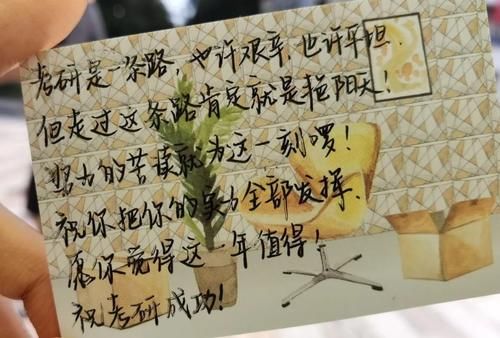 考研是一条路，也许艰辛，也许平坦．
但走过这条路肯定就是艳阳天！
努力的苦读就为这一刻啰！
祝你把你的实力全部发挥．
愿你觉得这一年值得！
祝考研成功！